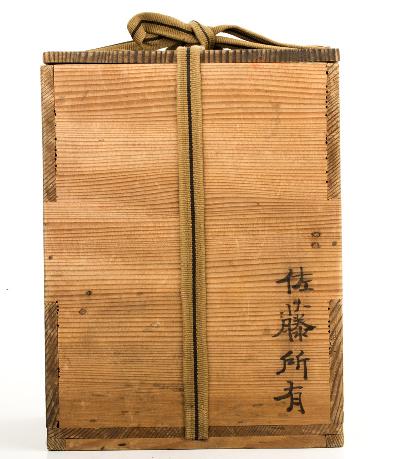 佐藤所有